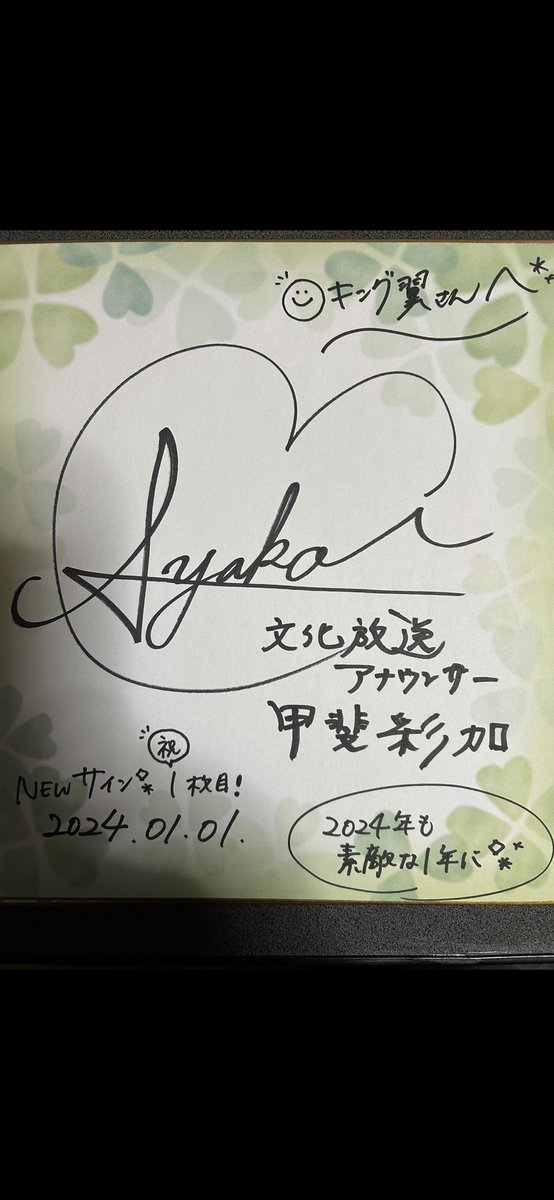 キング翼さんへ
Ayaka
文化放送
アナウンサー
甲斐彩加
祝
NEWサイン 1枚目!
2024.01.01.
2024年も
素敵な1年に